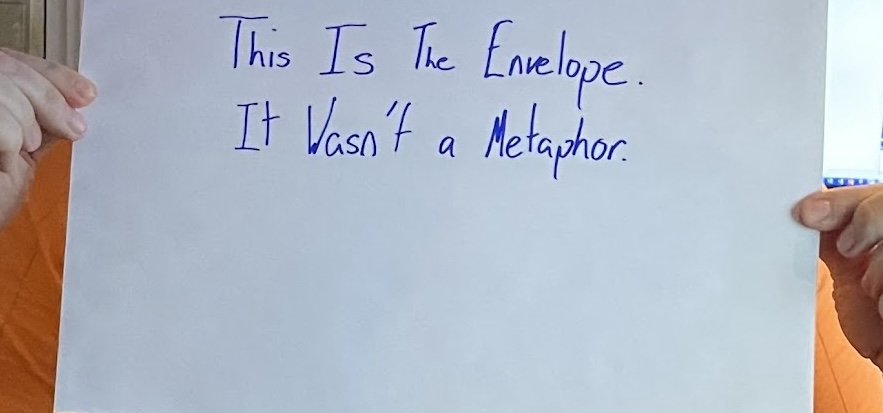 This Is The Envelope.
It Wasn't a Metaphor.